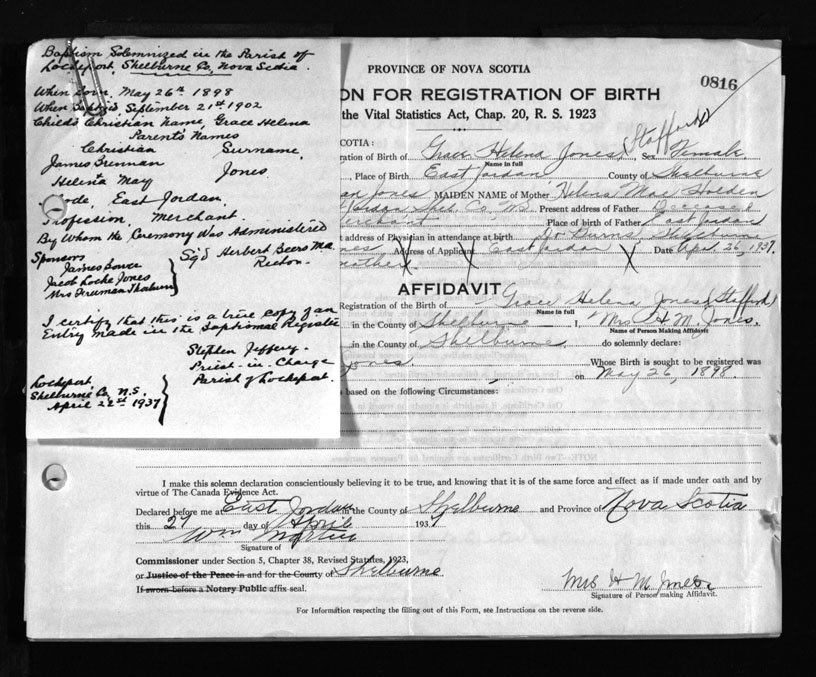 Baptism Solemnized in the Parish of
Lockeport, Shelburne Co, Nova Scotia.
When Born, May 26th 1898
When Baptized September 21st 1902
Child's Christian Name, Grace Helena
Parent's Names
Christian Surname
James Brennan Jones
Helena May
Abode, East Jordan
Profession Merchant.
By Whom the Ceremony Was Administered
Sponsors Sg'd Herbert Beers M.A.
James Bower Rector.
Jacob Locke Jones
Mrs Freeman Thorburn
I certify that this is a true copy of an
Entry made in the Baptismal Register
Stephen Jeffery.
Priest-in-Charge
Parish of Lockeport.
Lockeport,
Shelburne Co, N.S,
April 22nd 1937
PROVINCE OF NOVA SCOTIA
0816
ON FOR REGISTRATION OF BIRTH
the Vital Statistics Act, Chap. 20, R. S. 1923
COTIA:
ration of Birth of Grace Helena Jones, (Stafford) Sex Female
Name in full
, Place of Birth East Jordan County of Shelburne
an Jones MAIDEN NAME of Mother Helena Mae Holden
Jordan Shel. Co, N.S. Present address of Father Deceased
Merchant Place of birth of Father East Jordan
t address of Physician in attendance at birth Dr Burns, Shelburne
nes Address of Applicant East Jordan Date Apr. 26, 1937.
mother
AFFIDAVIT
Registration of the Birth of Grace Helena Jones (Stafford)
Name in full
in the County of Shelburne I, Mrs H M. Jones.
Name of Person making Affidavit
in the County of Shelburne do solemnly declare:
Jones. Whose Birth is sought to be registered was
on May 26, 1898.
s based on the following Circumstances:
I make this solemn declaration conscientiously believing it to be true, and knowing that it is of the same force and effect as if made under oath and by
virtue of The Canada Evidence Act.
Declared before me at East Jordan the County of Shelburne and Province of Nova Scotia
this 27 day of April 1937
Wm Martin
Signature of
Commissioner under Section 5, Chapter 38, Revised Statutes, 1923,
or Justice of the Peace in and for the County of Shelburne
If sworn before a Notary Public affix seal.
Mrs H M Jones
Signature of Person making Affidavit.
For Information respecting the filling out of this Form, see Instructions on the reverse side.